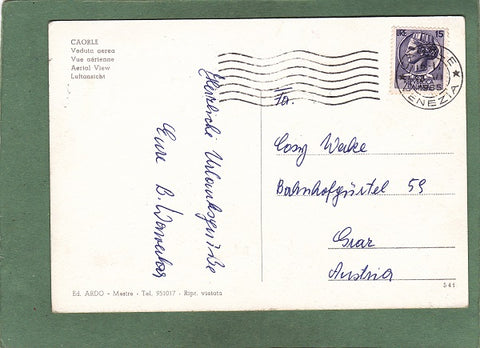 CAORLE
Veduta aerea
Vue aérienne
Aerial View
Luftansicht
Herzliche Urlaubsgrüße
Eure B.
LIRE 15
VENEZIA
Fa.
Cosy Werke
Bahnhofgürtel 59
Graz
Austria
Ed. ARDO - Mestre - Tel. 951017 - Ripr. vietata
541